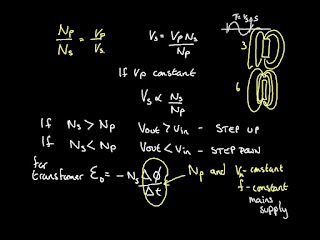 Np/Ns = Vp/Vs
Vs = Vp Ns/Np
If Vp constant
Vs ∝ Ns/Np
3
6
If Ns > Np Vout > Vin - STEP UP
If Ns < Np Vout < Vin - STEP DOWN
for transformer ε₀ = - Ns Δφ/Δt
Np and Vp - constant
f - constant
mains
supply